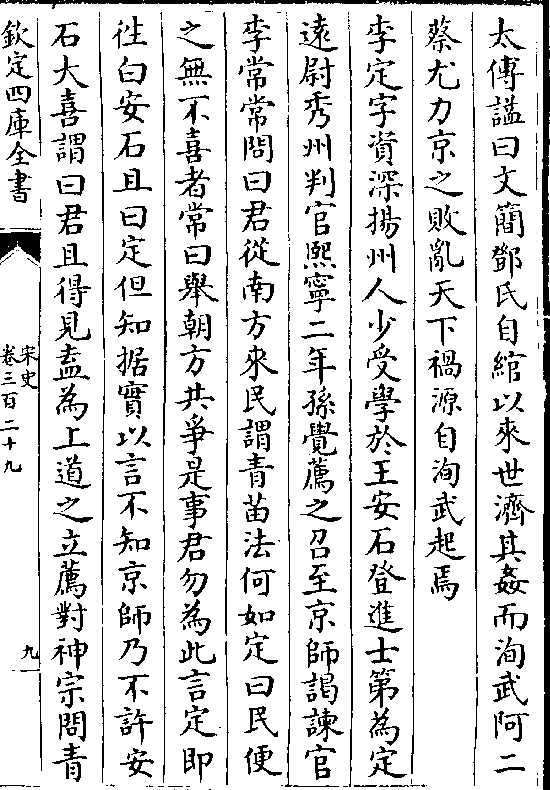 太傅諡曰文簡鄧氏自綰以來世濟其姦而洵武阿二
蔡尤力京之敗亂天下禍源自洵武起焉
李定字資深揚州人少受學於王安石登進士第為定
遠尉秀州判官熙寧二年孫覺薦之召至京師謁諫官
李常常問曰君從南方來民謂青苗法何如定曰民便
之無不喜者常曰舉朝方共爭是事君勿為此言定即
徃白安石且曰定但知据實以言不知京師乃不許安
石大喜謂曰君且得見盍為上道之立薦對神宗問青
欽定四庫全書
宋史
卷三百二十九
九